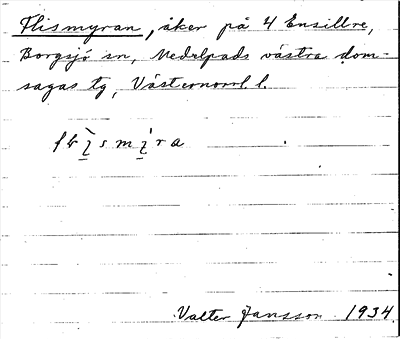 Flismyran, åker på 4 Ensillre,
Borgsjö sn, Medelpads västra dom-
sagas tg, Västernorrl. l.
Valter Jansson 1934.